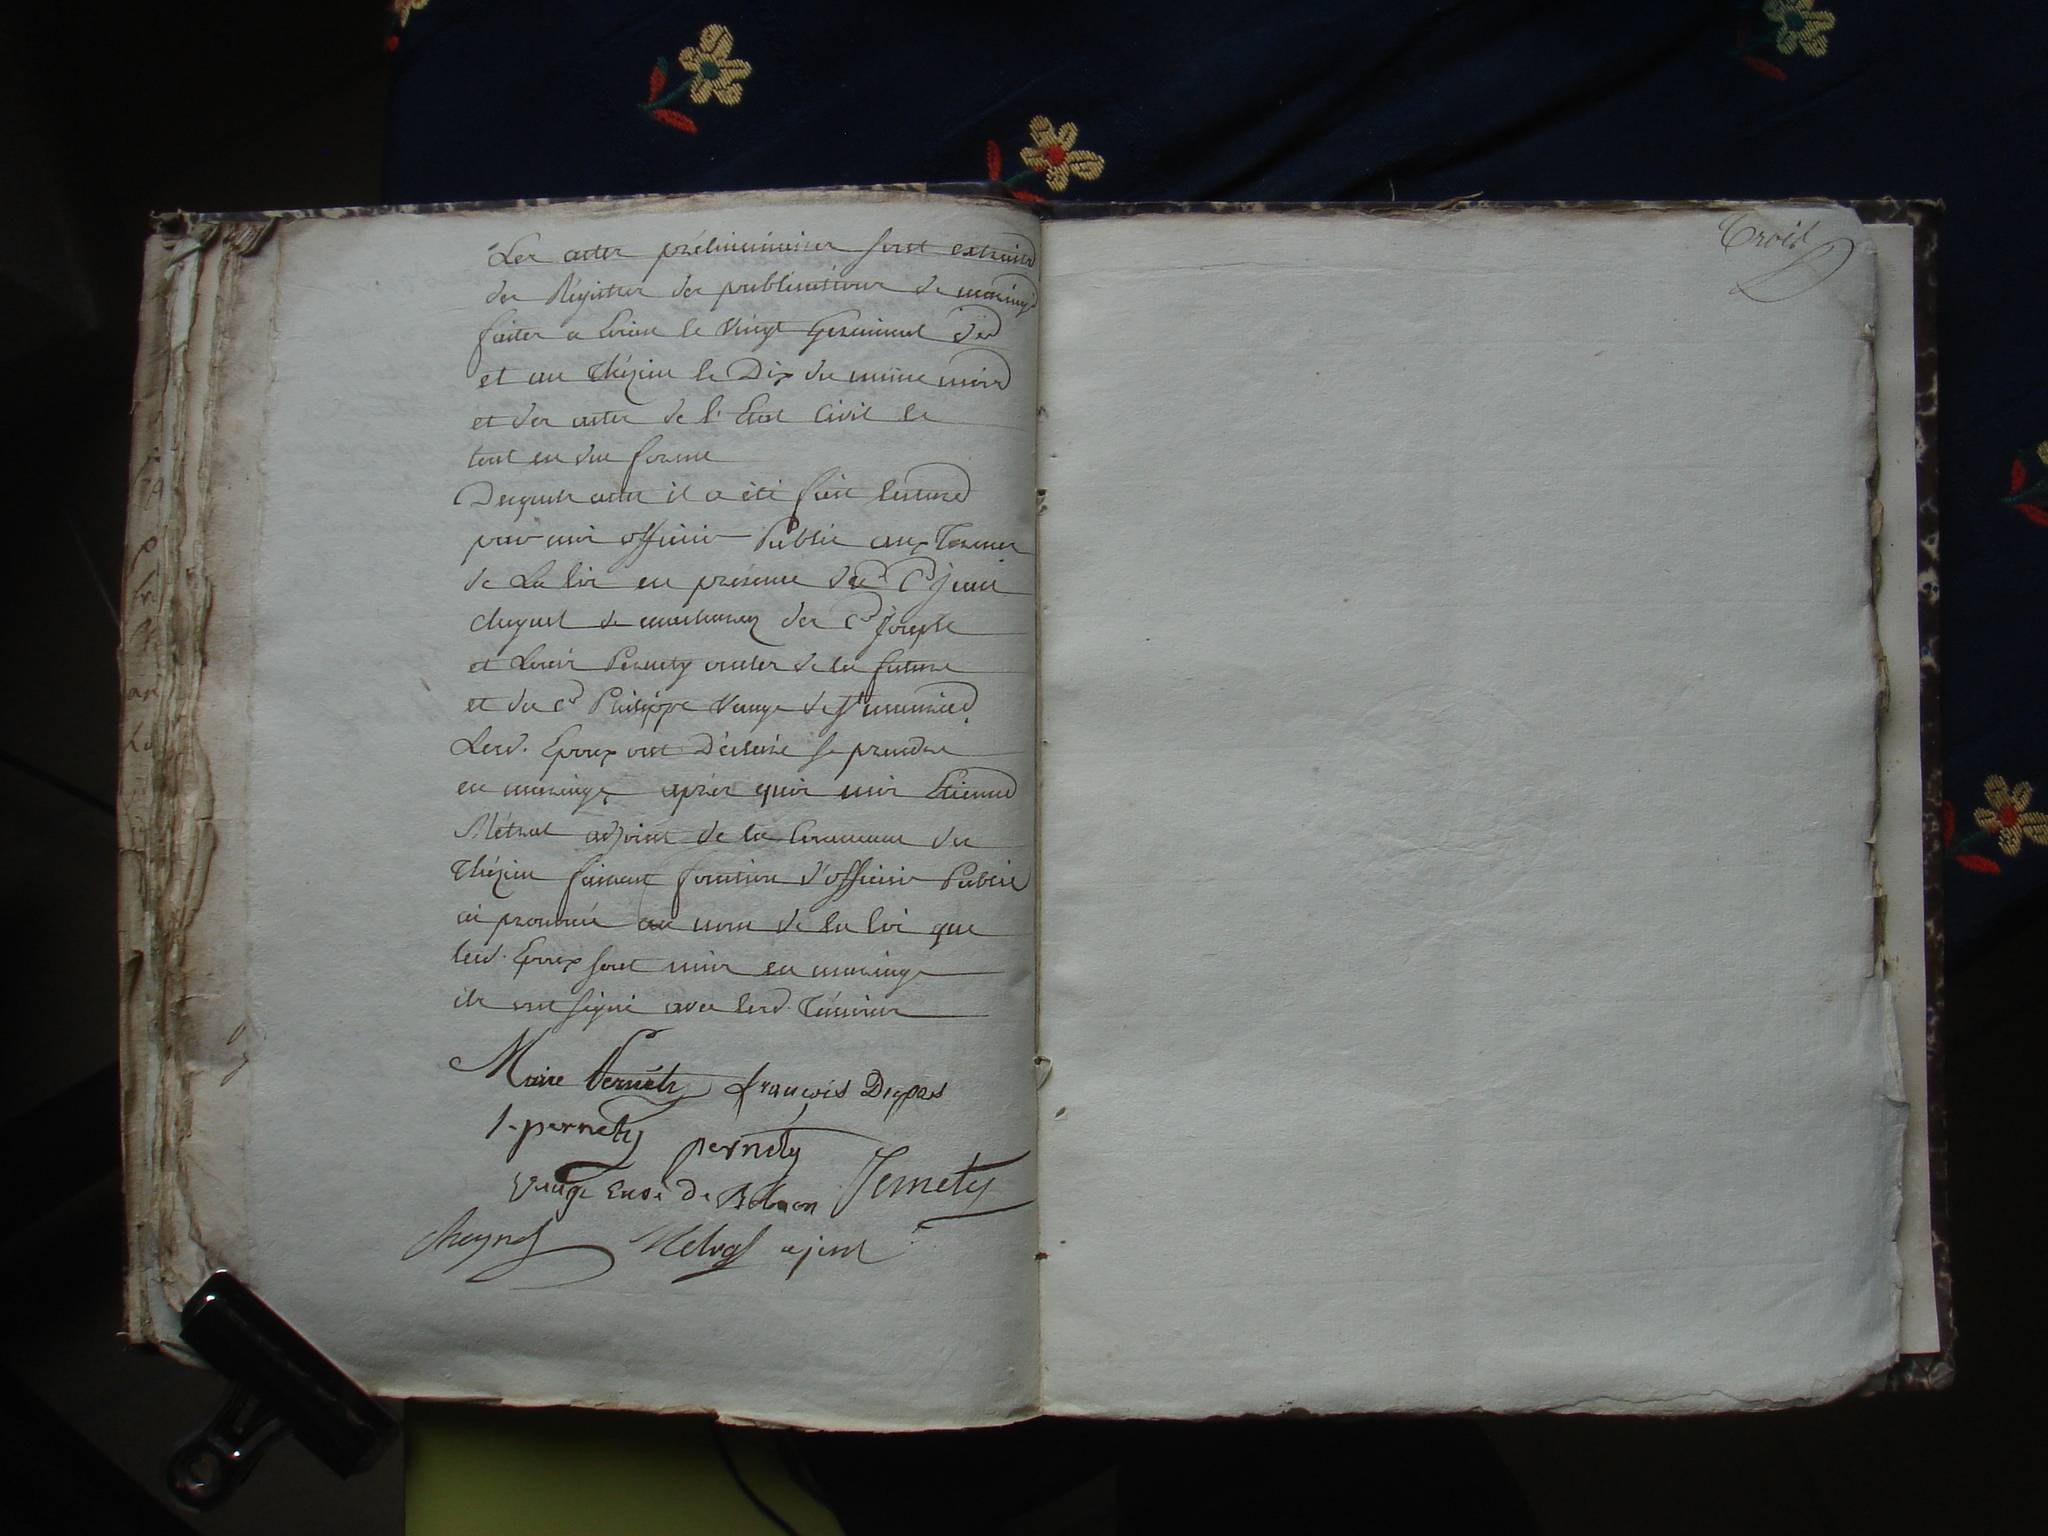 Les actes préliminaires sont extraits
des Régistres des publications de mariage
faites a le Vingt Germinal d'er
et au Thézieu le Dix du même mois
et des actes de l'Etat Civil le
tout en due forme
Desquels actes il a été fait lecture
par moi officier Public aux Termes
de La loi en présence
de des Cns Joseph
et Louis Pernety oncles de la future
et du Cn Philippe Vauge de
Lesd. Epoux ont Déclaré se prendre
en mariage après quoi moi Etienne
Métral adjoint de la Commune du
Thézieu faisant fonction d'officier Public
ai prononcé au nom de la loi que
lesd. Epoux sont unis en mariage
ils ont signé avec lesd. Témoins
Marie Pernety françois Degros
J. pernety pernety
Vauge De Pernety
Metral ajoint
Trois